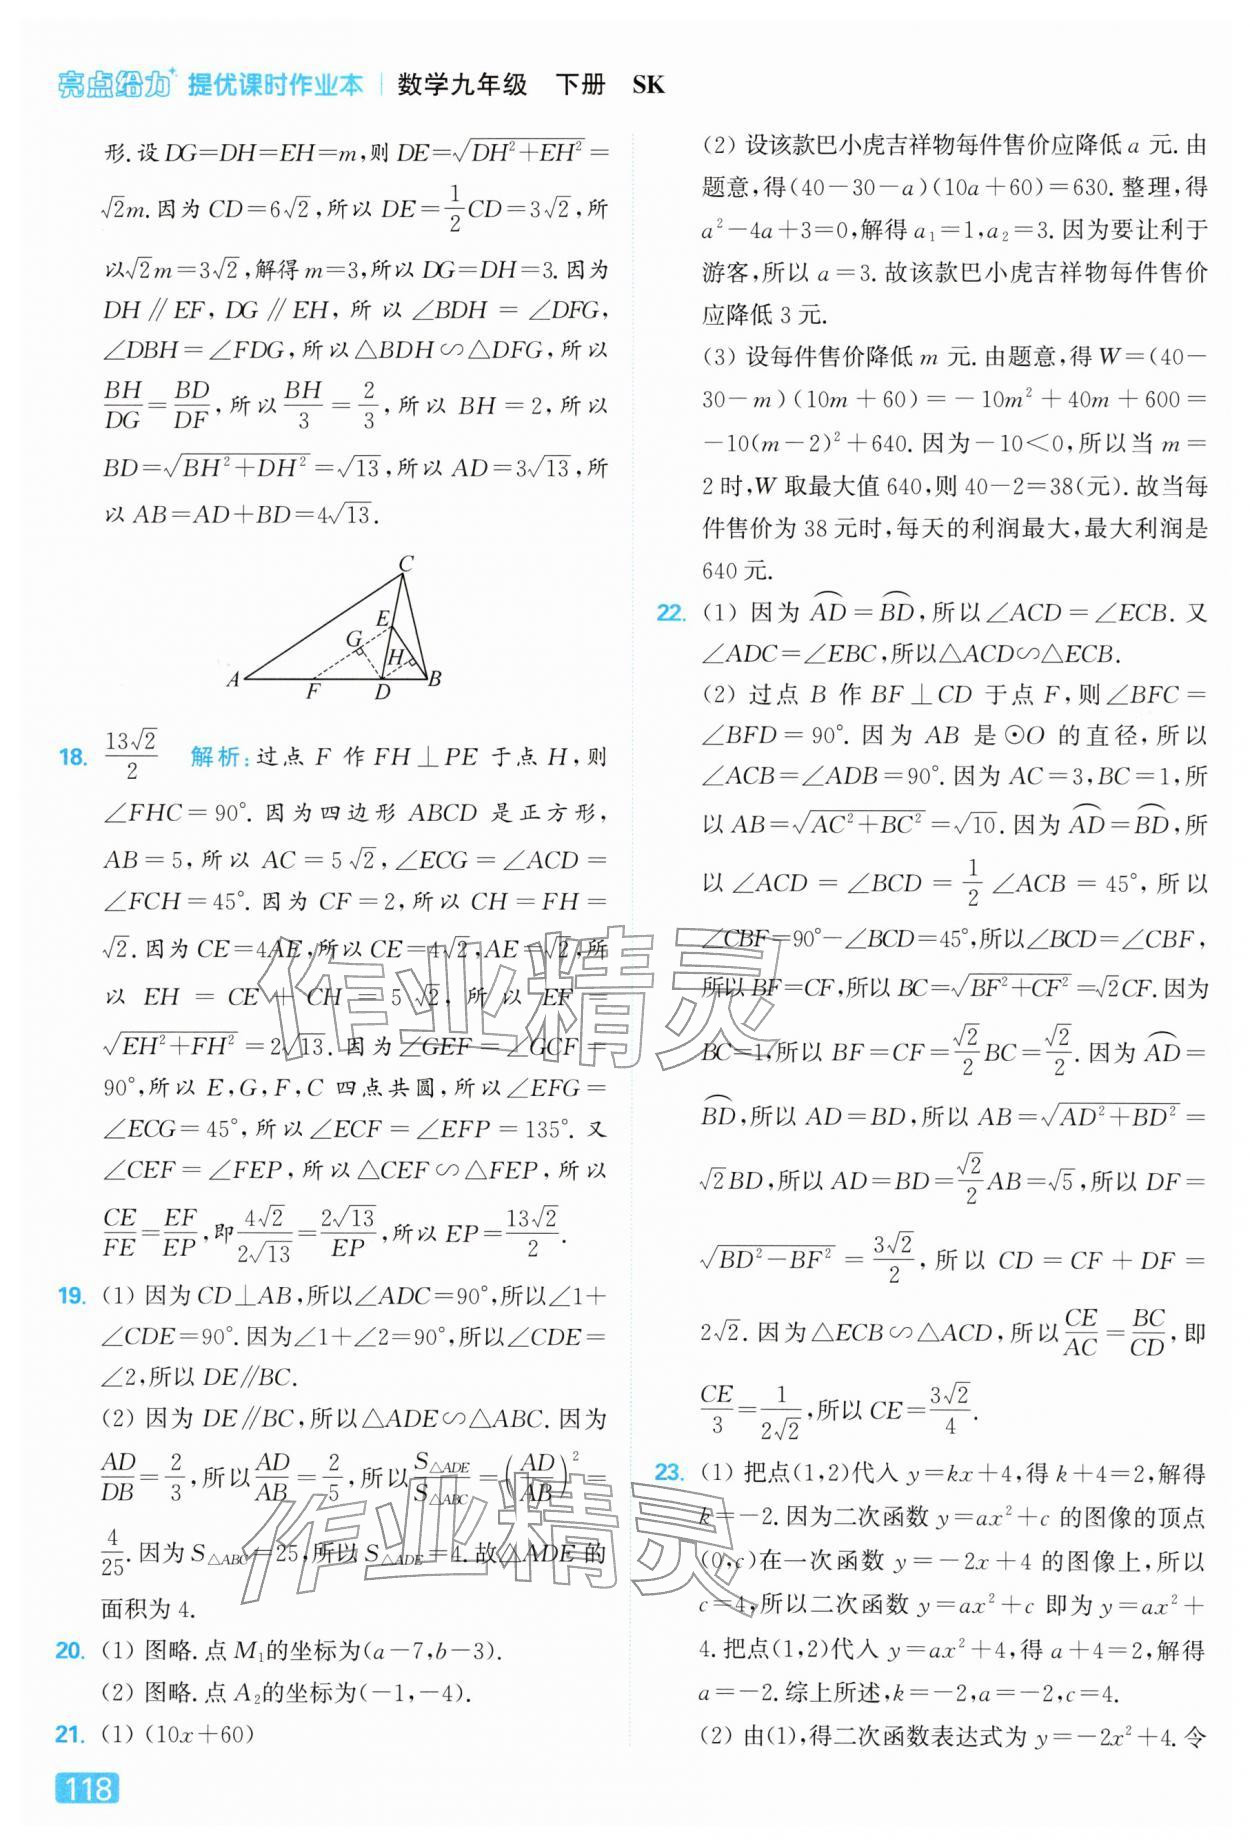 亮点给力 提优课时作业本 | 数学九年级 下册 SK
形.设 DG=DH=EH=m,则 DE=√(DH²+EH²)=
√2m.因为 CD=6√2,所以 DE=1/2CD=3√2,所
以√2m=3√2,解得 m=3,所以 DG=DH=3.因为
DH∥EF,DG∥EH,所以∠BDH=∠DFG,
∠DBH=∠FDG,所以△BDH∽△DFG,所以
BH/DG=BD/DF,所以BH/3=2/3,所以 BH=2,所以
BD=√(BH²+DH²)=√13,所以 AD=3√13,所
以 AB=AD+BD=4√13.
C
E
G
H
A F D B
18. 13√2/2 解析:过点 F 作 FH⊥PE 于点 H,则
∠FHC=90°.因为四边形 ABCD 是正方形,
AB=5,所以 AC=5√2,∠ECG=∠ACD=
∠FCH=45°.因为 CF=2,所以 CH=FH=
√2.因为 CE=4AE,所以 CE=4√2,AE=√2,所
以 EH=CE+CH=5√2,所以 EF=
√(EH²+FH²)=2√13.因为∠GEF=∠GCF=
90°,所以 E,G,F,C 四点共圆,所以∠EFG=
∠ECG=45°,所以∠ECF=∠EFP=135°.又
∠CEF=∠FEP,所以△CEF∽△FEP,所以
CE/FE=EF/EP,即4√2/2√13=2√13/EP,所以 EP=13√2/2.
19. (1) 因为 CD⊥AB,所以∠ADC=90°,所以∠1+
∠CDE=90°.因为∠1+∠2=90°,所以∠CDE=
∠2,所以 DE∥BC.
(2) 因为 DE∥BC,所以△ADE∽△ABC.因为
AD/DB=2/3,所以AD/AB=2/5,所以S△ADE/S△ABC=(AD/AB)²=
4/25.因为 S△ABC=25,所以 S△ADE=4.故△ADE 的
面积为 4.
20. (1) 图略.点 M₁的坐标为(a-7,b-3).
(2) 图略.点 A₂的坐标为(-1,-4).
21. (1) (10x+60)
118
(2) 设该款巴小虎吉祥物每件售价应降低 a 元.由
题意,得(40-30-a)(10a+60)=630.整理,得
a²-4a+3=0,解得 a₁=1,a₂=3.因为要让利于
游客,所以 a=3.故该款巴小虎吉祥物每件售价
应降低 3 元.
(3) 设每件售价降低 m 元.由题意,得 W=(40-
30-m)(10m+60)=-10m²+40m+600=
-10(m-2)²+640.因为-10<0,所以当 m=
2 时,W 取最大值 640,则 40-2=38(元).故当每
件售价为 38 元时,每天的利润最大,最大利润是
640 元.
22. (1) 因为 A͡D=B͡D,所以∠ACD=∠ECB.又
∠ADC=∠EBC,所以△ACD∽△ECB.
(2) 过点 B 作 BF⊥CD 于点 F,则∠BFC=
∠BFD=90°.因为 AB 是⊙O 的直径,所以
∠ACB=∠ADB=90°.因为 AC=3,BC=1,所
以 AB=√(AC²+BC²)=√10.因为 A͡D=B͡D,所
以∠ACD=∠BCD=1/2∠ACB=45°,所以
∠CBF=90°-∠BCD=45°,所以∠BCD=∠CBF,
所以 BF=CF,所以 BC=√(BF²+CF²)=√2CF.因为
BC=1,所以 BF=CF=√2/2BC=√2/2.因为 A͡D=
B͡D,所以 AD=BD,所以 AB=√(AD²+BD²)=
√2BD,所以 AD=BD=√2/2AB=√5,所以 DF=
√(BD²-BF²)=3√2/2,所以 CD=CF+DF=
2√2.因为△ECB∽△ACD,所以CE/AC=BC/CD,即
CE/3=1/2√2,所以 CE=3√2/4.
23. (1) 把点(1,2)代入 y=kx+4,得 k+4=2,解得
k=-2.因为二次函数 y=ax²+c 的图像的顶点
(0,c)在一次函数 y=-2x+4 的图像上,所以
c=4,所以二次函数 y=ax²+c 即为 y=ax²+
4.把点(1,2)代入 y=ax²+4,得 a+4=2,解得
a=-2.综上所述,k=-2,a=-2,c=4.
(2) 由(1),得二次函数表达式为 y=-2x²+4.令
作业精灵
作业精灵